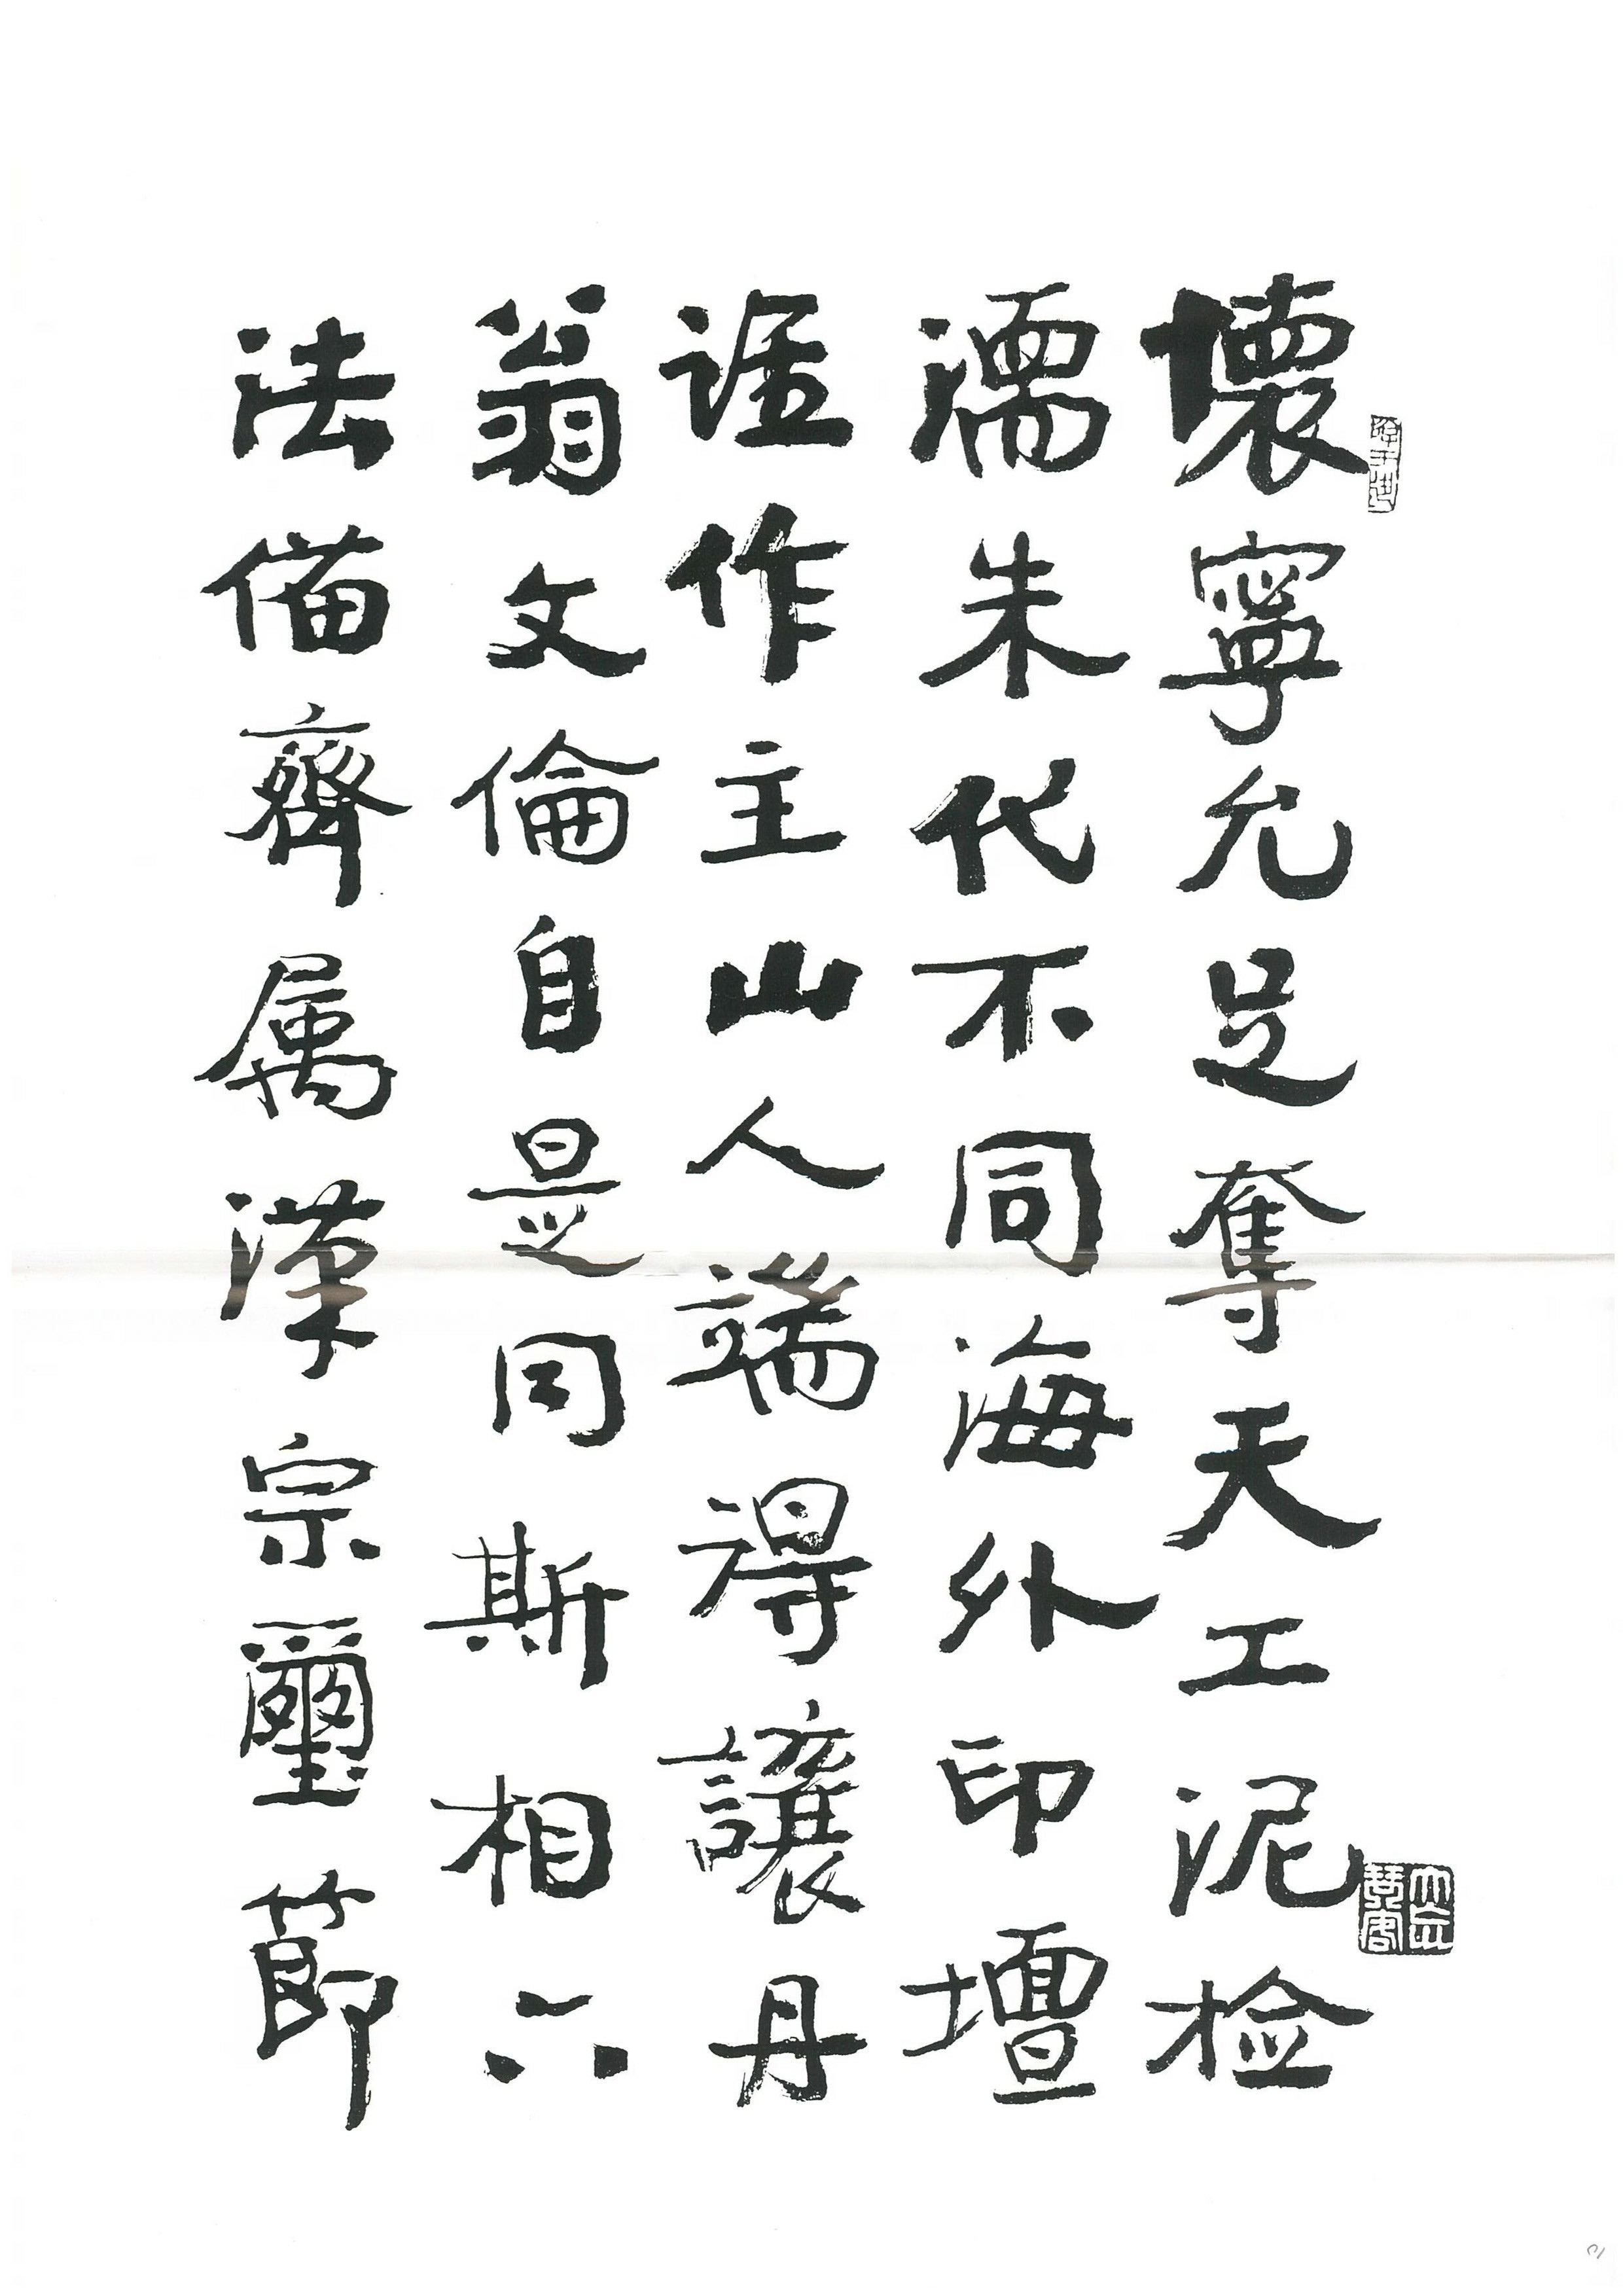 壞寧允足奪天工泥检
濡朱代不同海外印壇
谁作主山人端得讓丹
翁文倫自是同斯相六
法備齊属漢宗璽節